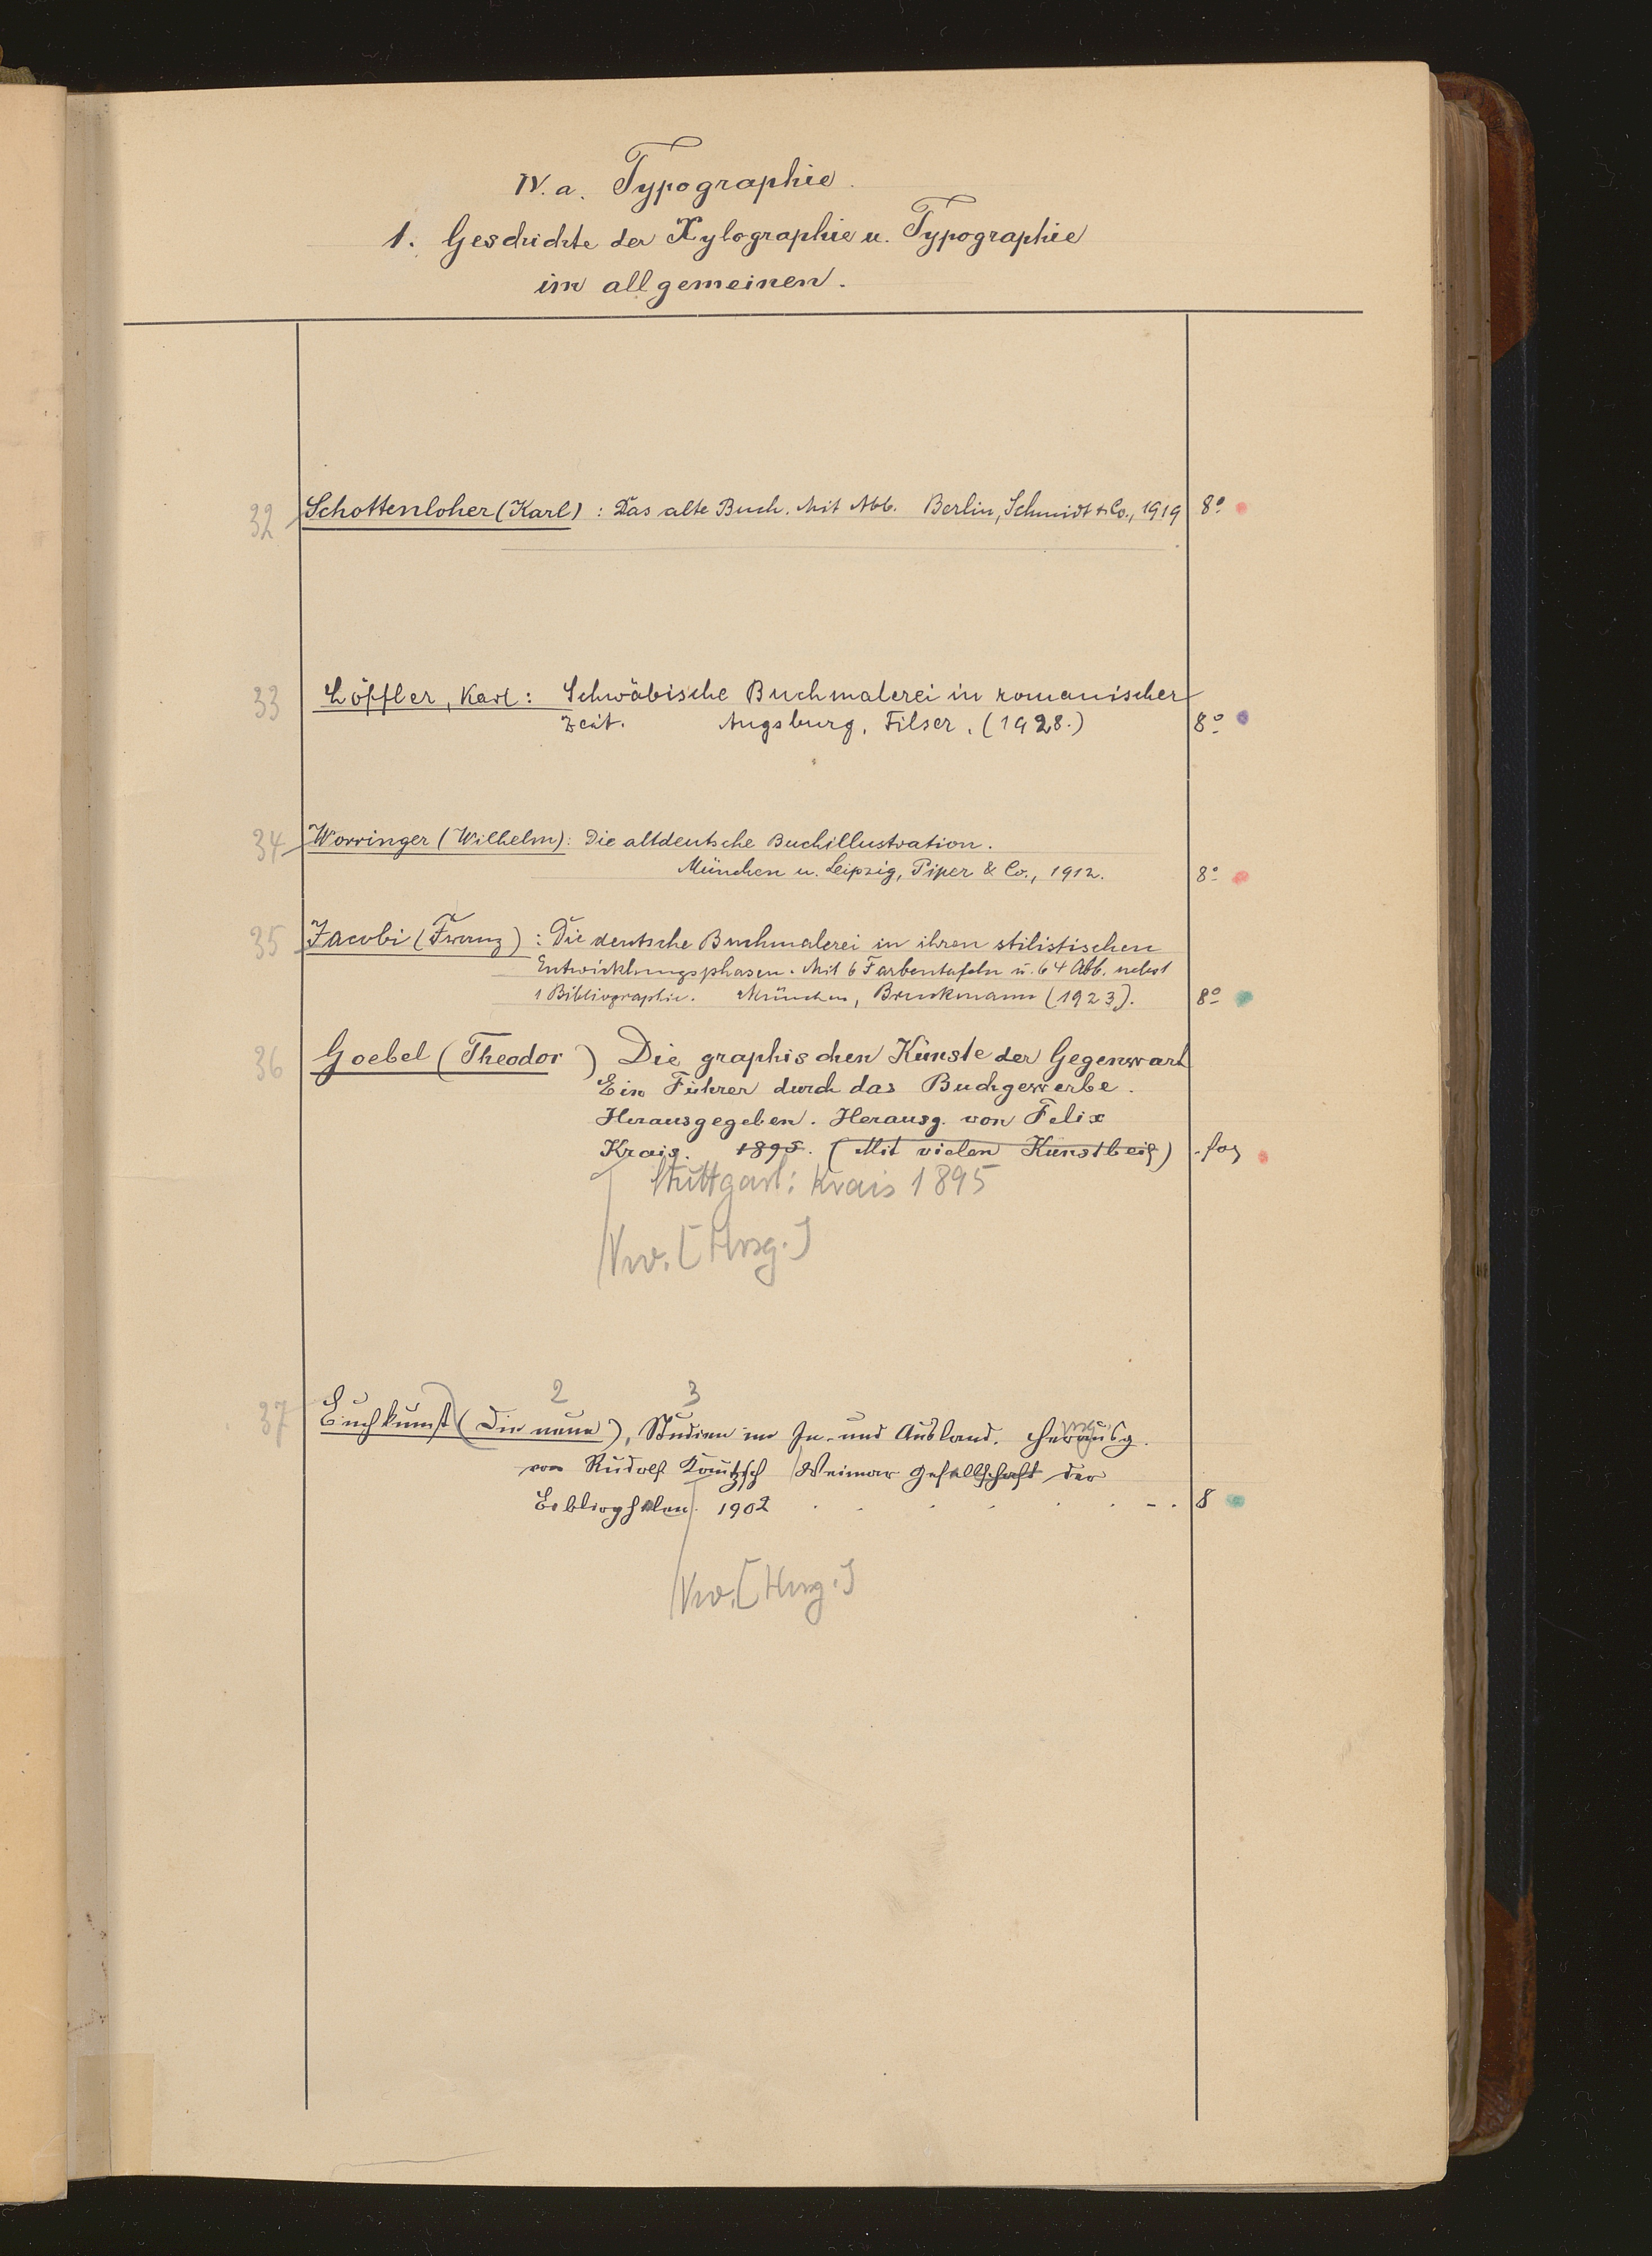 IV. a. Typographie.
1. Geschichte der Xylographie u. Typographie
im allgemeinen.
32 Schottenloher (Karl) : Das alte Buch. Mit Abb. Berlin, Schmidt & Co., 1919 8º
33 Löffler, Karl : Schwäbische Buchmalerei in romanischer
Zeit. Augsburg, Filser. (1928.) 8º
34 Worringer (Wilhelm) : Die altdeutsche Buchillustration.
München u. Leipzig, Piper & Co., 1912. 8º
35 Jacobi (Franz) : Die deutsche Buchmalerei in ihren stilistischen
Entwicklungsphasen. Mit 6 Farbentafeln u. 64 Abb. nebst
1 Bibliographie. München, Bruckmann (1923). 8º
36 Goebel (Theodor) Die graphischen Künste der Gegenwart
Ein Führer durch das Buchgewerbe.
Herausgegeben. Herausg. von Felix
Krais. 1895. (Mit vielen Kunstbeil) fol
Stuttgart: Krais 1895
Vw. [Hrsg.]
2 3
37 Buchkunst (Die neue), Studien im In- und Ausland. Herausg.
von Rudolf Kautzsch Weimar Gesellschaft der
Bibliophilen. 1902 8
Vw. [Hrsg.]